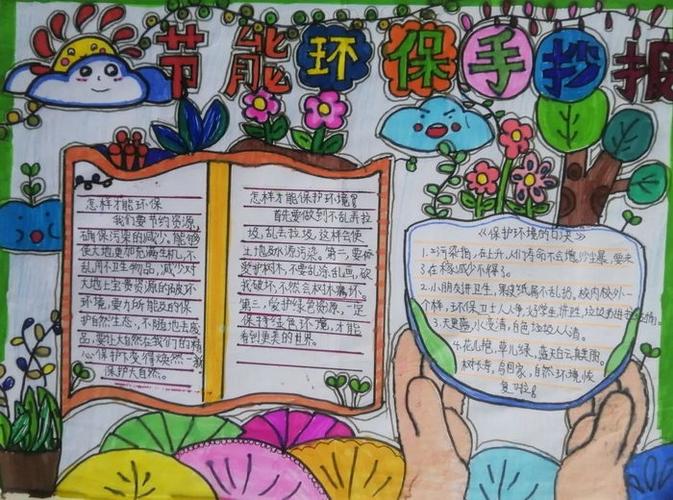 节能环保手抄报
怎样才能环保
我们要节约资源,
确保污染的减少,能够
使大地更加充满生机,不
乱用不卫生物品,减少对
大地上宝贵资源的破坏
环境,要力所能及的保
护自然生态,不随地去废
品,要让大自然在我们的精
心保护下变得焕然一新
保护大自然。
怎样才能保护环境
首先要做到不乱弄垃
圾,乱丢垃圾,这样会使
土地及水源污染。第二,要做
爱护树木,不要乱涂乱画,砍
我破坏,不然会树木
第三,爱护绿色资源,一定
保持绿色环境,才能
看到更美的世界。
《保护环境的口决》
1.污染指,在上升,人们寿命不会增,沙尘暴,要来
2.小朋友讲卫生,果皮纸屑不乱扔。校内校外一
个样,环保卫士人人争,好学生讲卫生,垃圾
3.天更蓝,水变清,白色垃圾人人清。
4.花儿艳,草儿绿,蓝天白云真美丽。
树长寿,鸟回家,自然环境恢
复啦